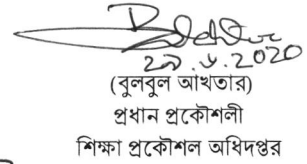 ২৯.৬.2020
(বুলবুল আখতার)
প্রধান প্রকৌশলী
শিক্ষা প্রকৌশল অধিদপ্তর